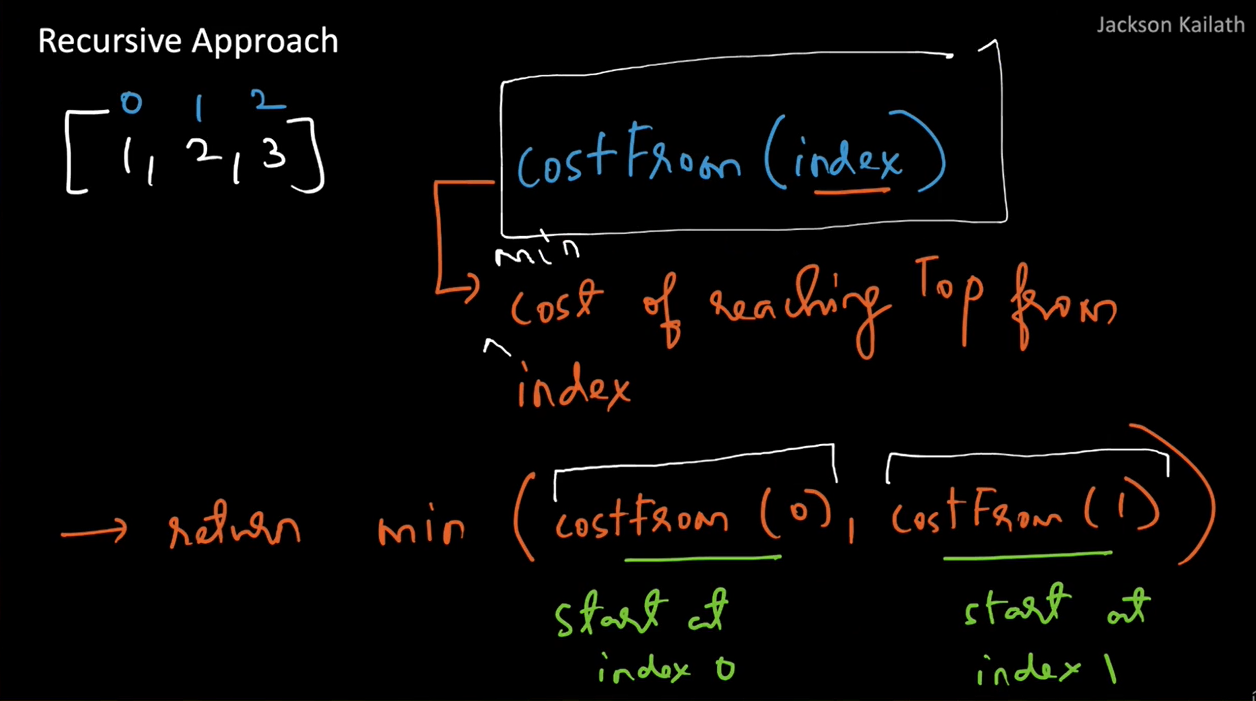 Recursive Approach
Jackson Kailath
0 1 2
[1, 2, 3]
costFrom (index)
min
cost of reaching Top from
^ index
→ return min (costFrom (0), costFrom (1))
start at start at
index 0 index 1